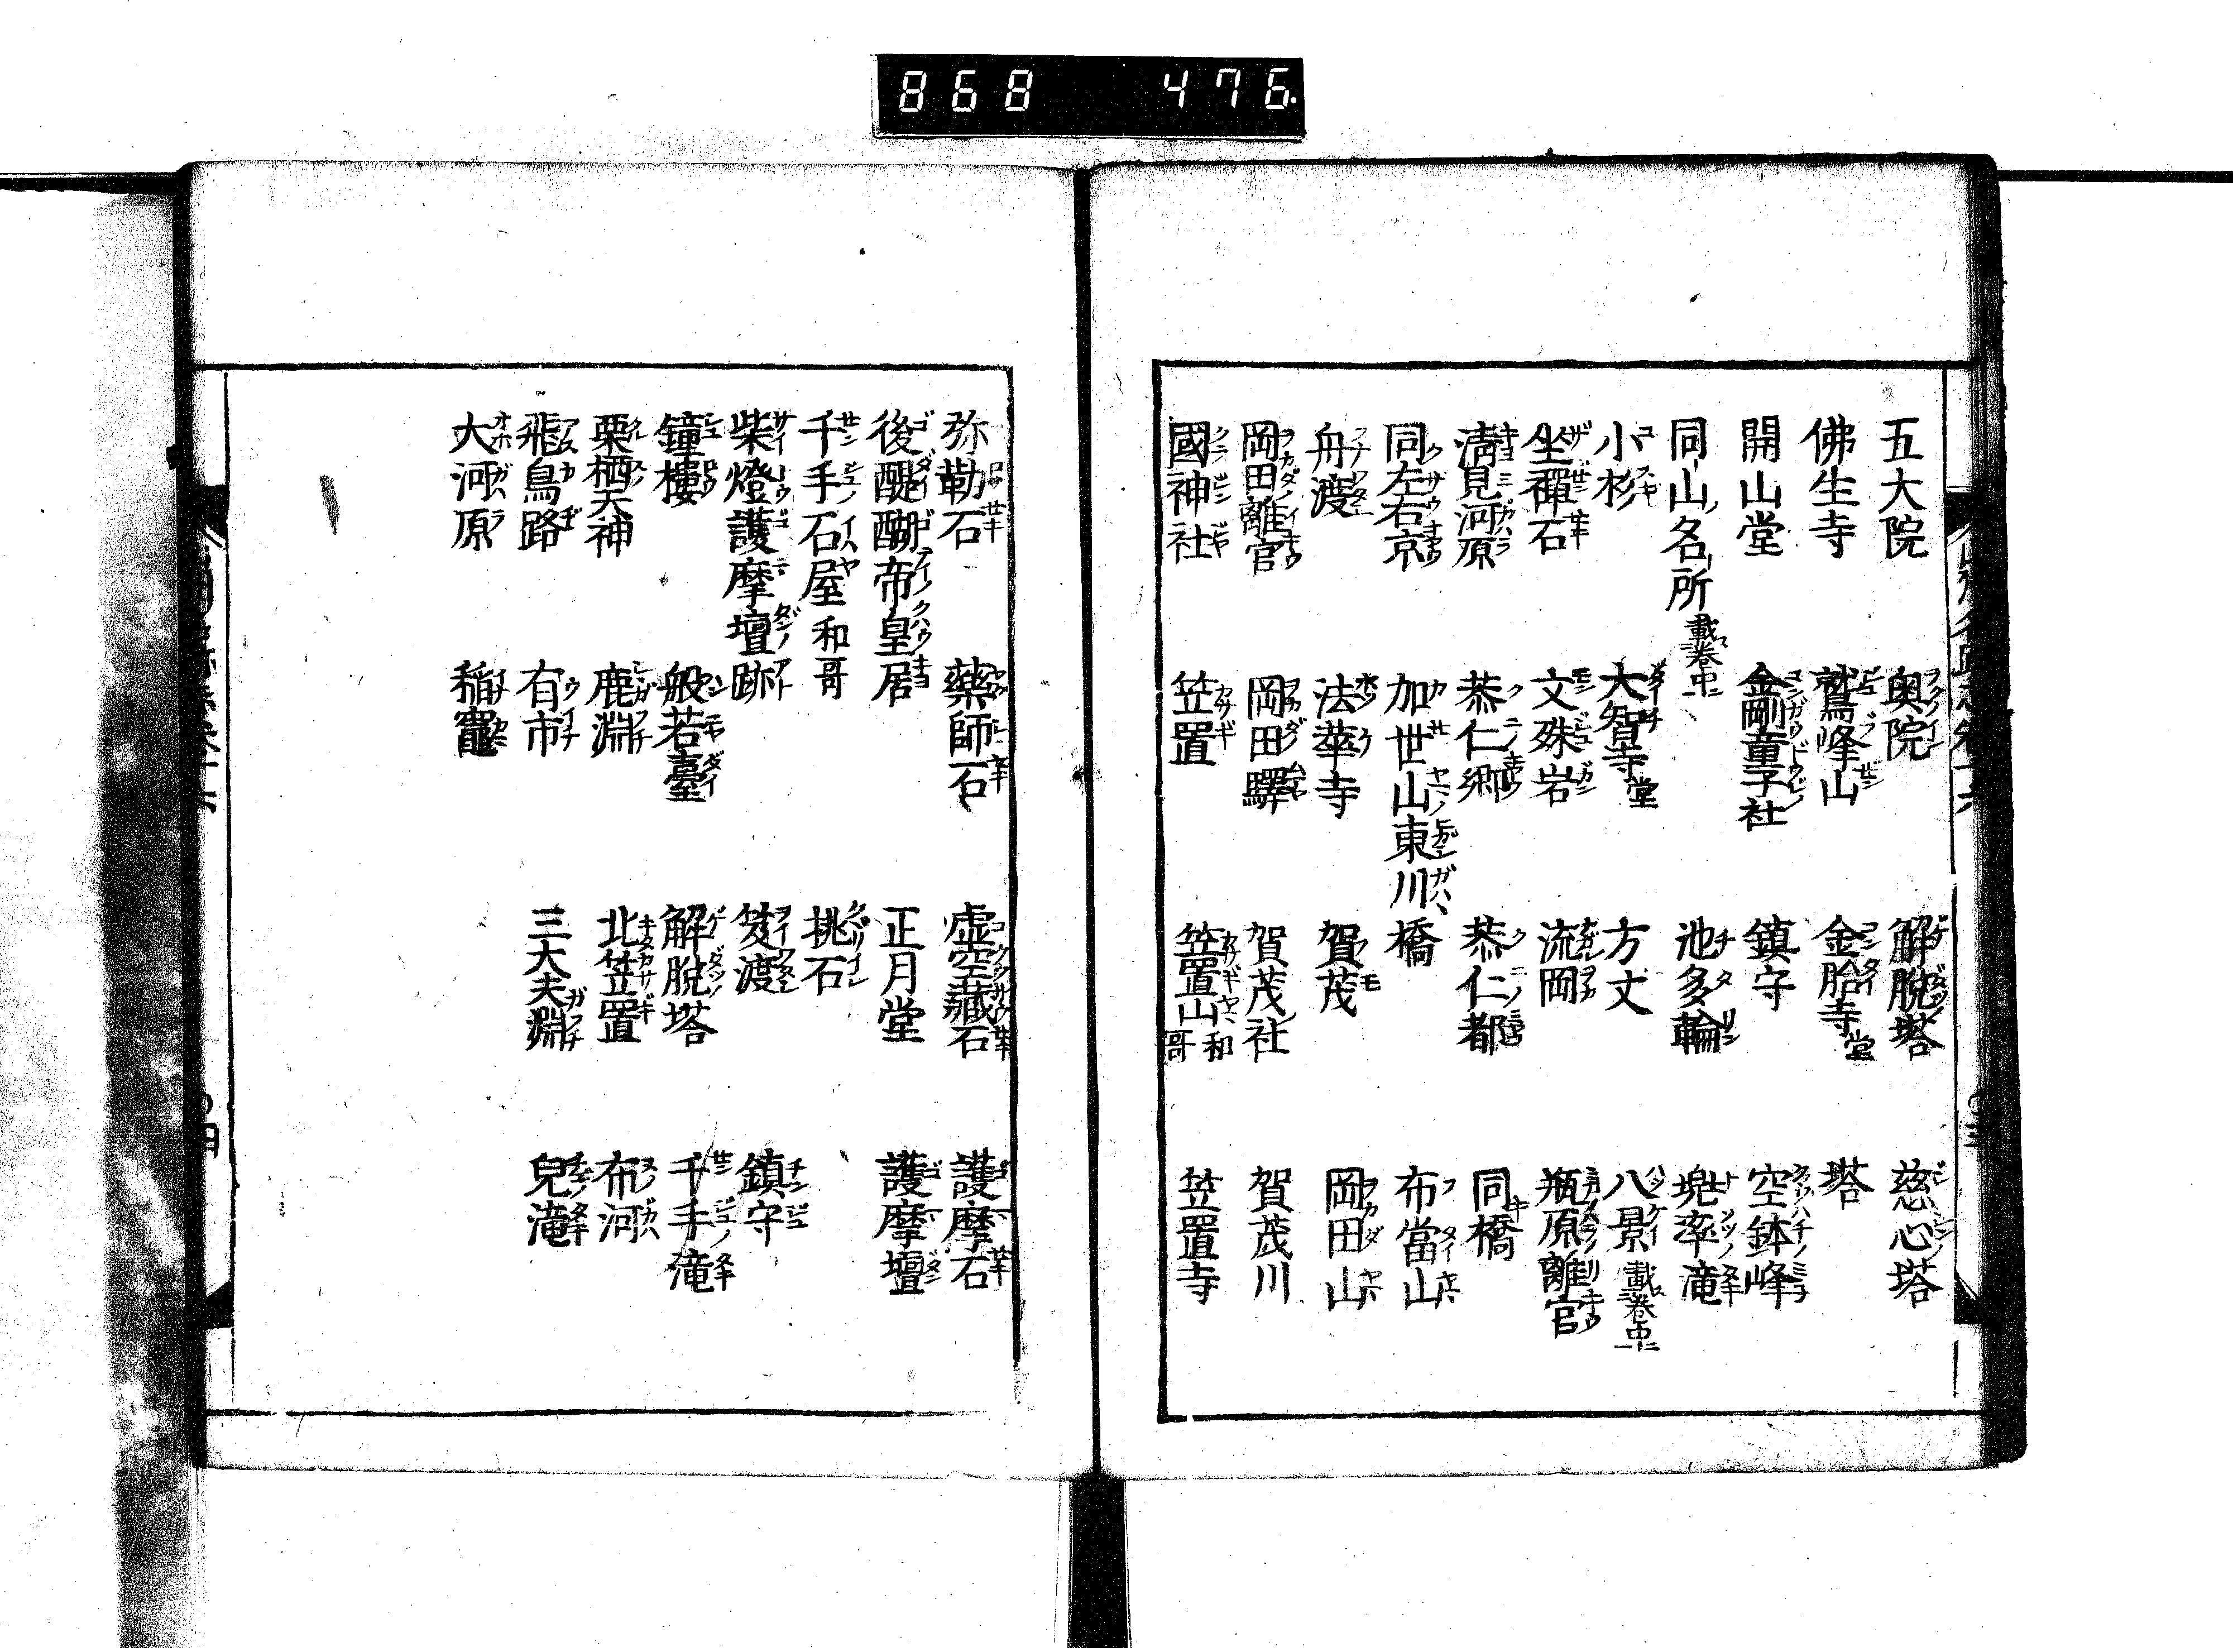 868 476
五大院 奥院 解脱塔 慈心塔
佛生寺 鷲峰山 金胎寺堂 塔
開山堂 金剛童子社 鎮守 空鉢峰
同山名所載卷中ニ 池多輪 兜率滝
小杉 大智寺堂 方丈 八景載卷中ニ
坐禪石 文殊岩 流岡 瓶原離宮
淸見河原 恭仁郷 恭仁都 同橋
同左右京 加世山東川 橋 布當山
舟渡 法華寺 賀茂 岡田山
岡田離宮 岡田驛 賀茂社 賀茂川
國神社 笠置 笠置山和哥 笠置寺
弥勒石 藥師石 虚空藏石 護摩石
後醍醐帝皇居 正月堂 護摩壇
千手石屋和哥 挑石
柴燈護摩壇跡 笈渡 鎮守
鐘樓 般若臺 解脱塔 千手滝
栗栖天神 鹿淵 北笠置 布河
飛鳥路 有市 三大夫淵 兒滝
大河原 稲竈